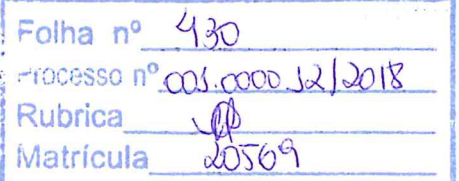 Folha nº 430
Processo nº 001.0000 12/2018
Rubrica
Matrícula 20569